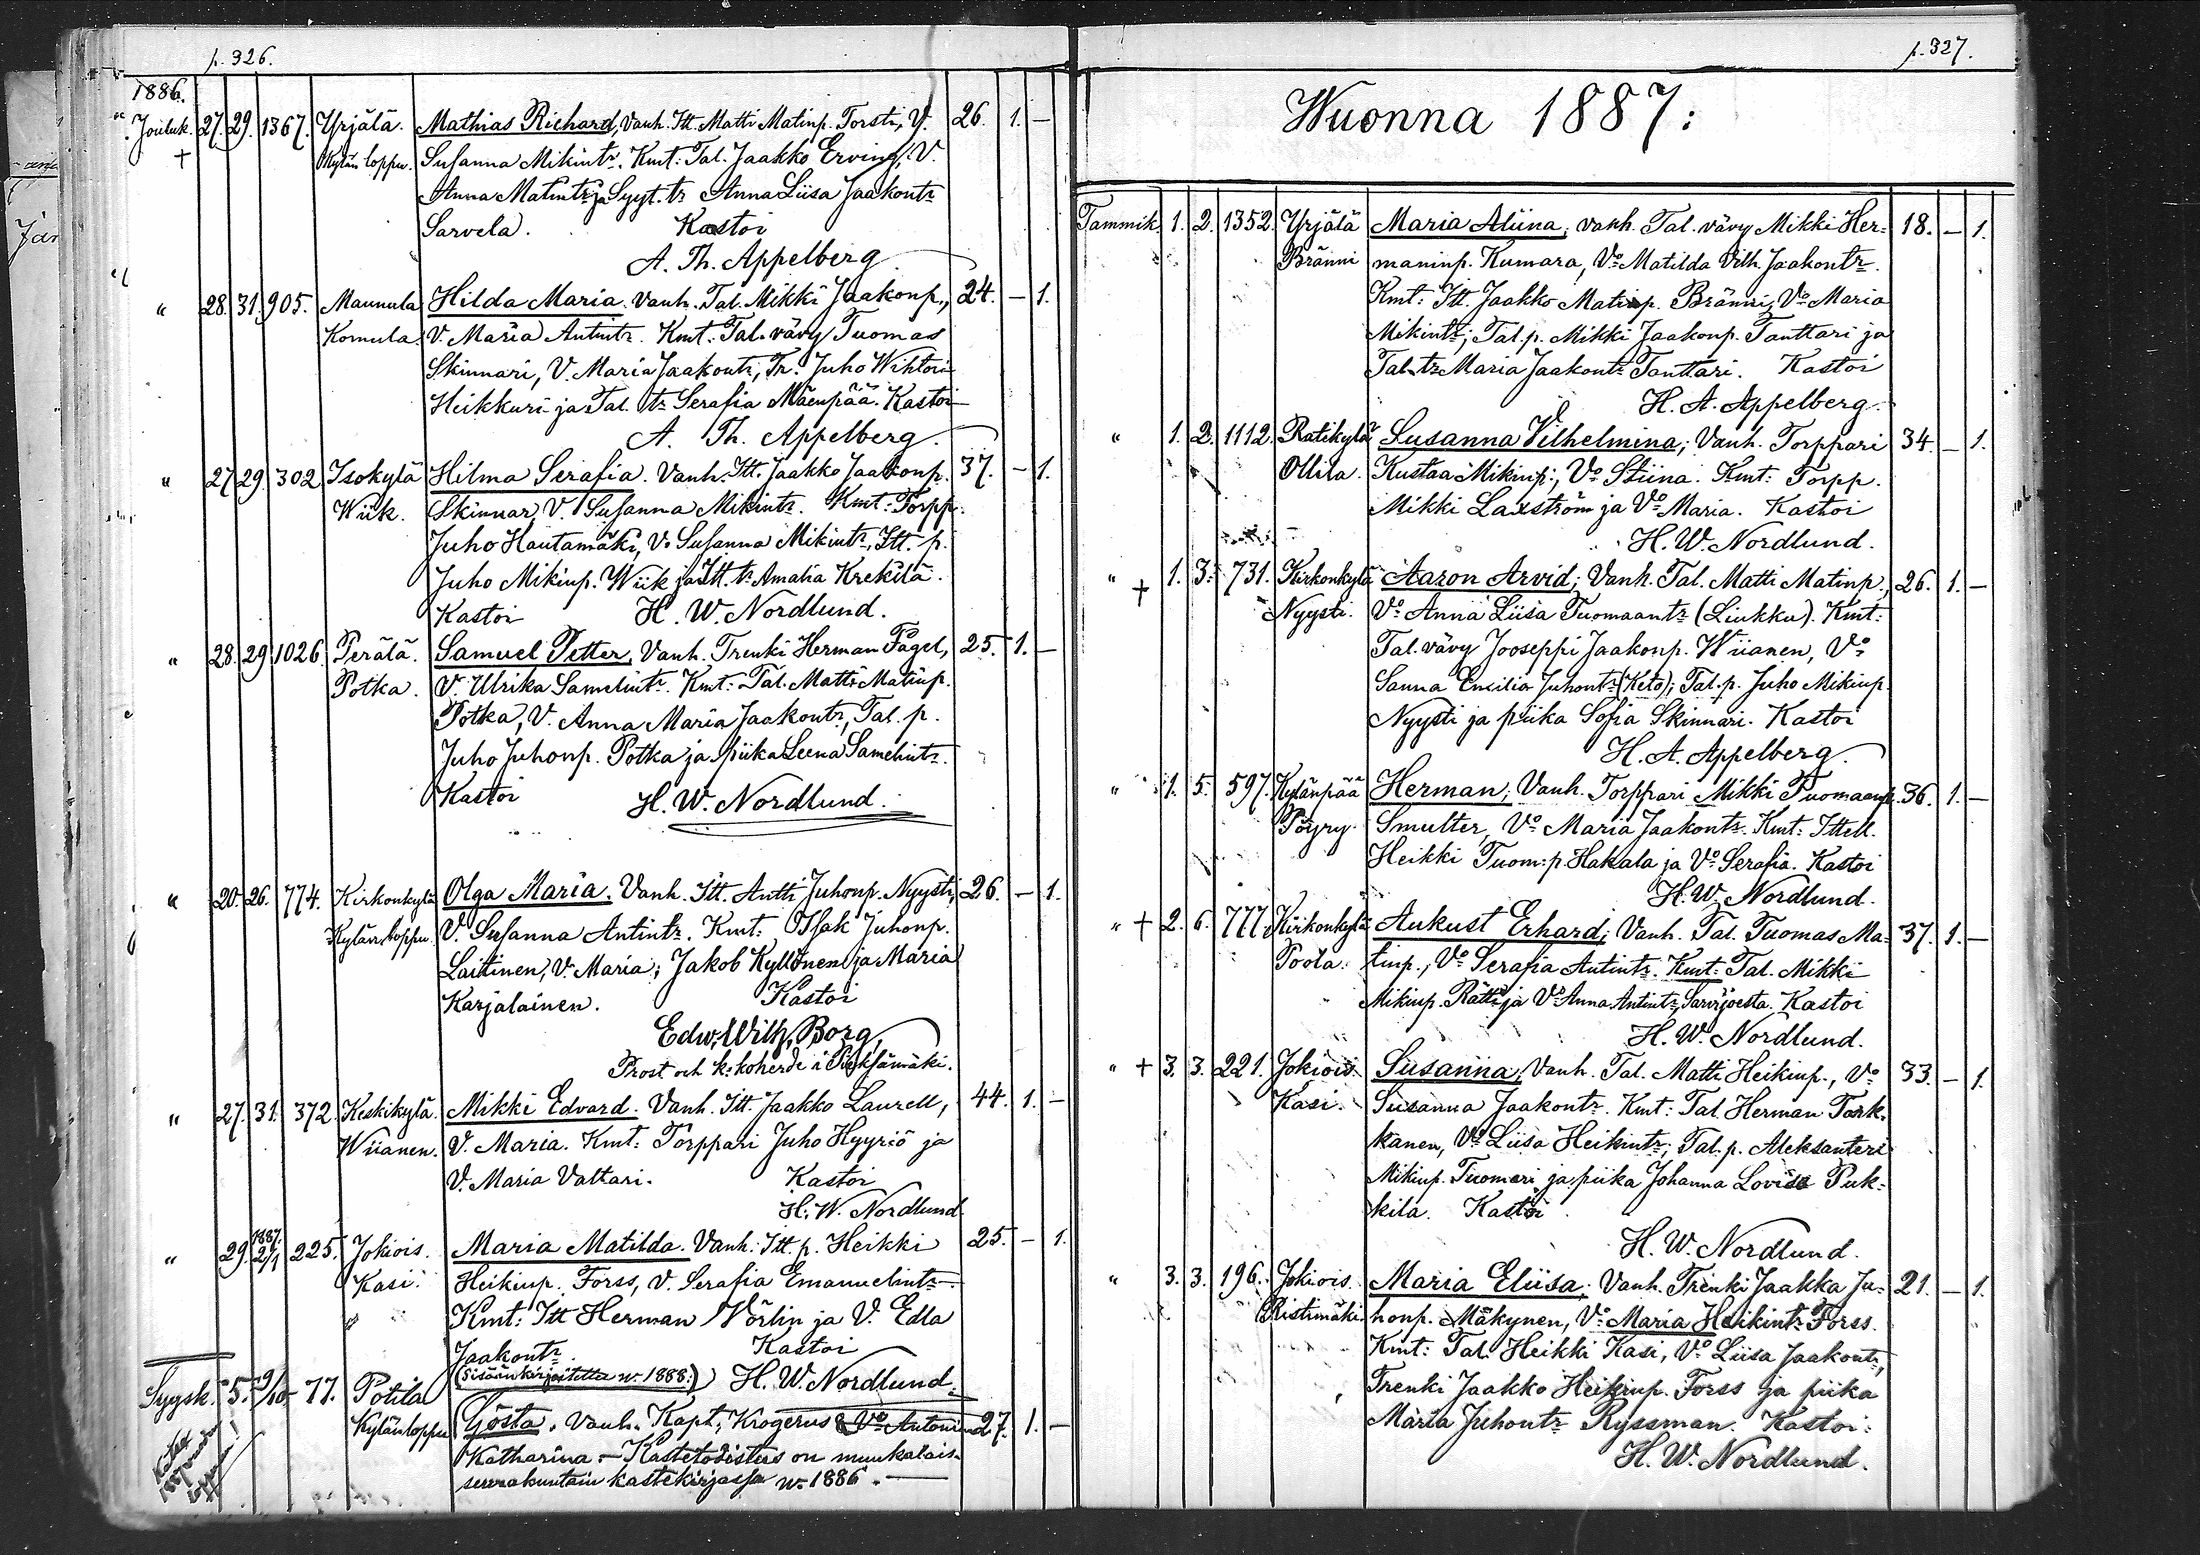 p. 326.
1886.
" Jouluk. 27. 29. 1367. Yrjälä. Mathias Richard, Vanh. Itt. Matti Matinp. Torsti, V. 26. 1. —
+ Kylän loppu. Susanna Mikintr. Kmt: Tal. Jaakko Erving, V.
Anna Matintr ja Syyt. tr Anna Liisa Jaakontr
Sarvela. Kastoi
A. Th. Appelberg
" 28. 31. 905. Maunula Hilda Maria. Vanh. Tal. Mikki Jaakonp., 24. — 1.
Komula. V. Maria Antintr. Kmt. Tal. vävy Tuomas
Skinnari, V. Maria Jaakontr, Tr. Juho Wihtori
Heikkuri ja Tal. tr Serafia Mäenpää. Kastoi
A. Th. Appelberg.
" 27. 29. 302 Isokylä Hilma Serafia. Vanh. Itt. Jaakko Jaakonp. 37. — 1.
Wiik. Skinnar, V. Susanna Mikintr. Kmt: Torpp.
Juho Hautamäki, V. Susanna Mikintr, Itt. p.
Juho Mikinp. Wiik ja Itt. tr Amalia Krekilä.
Kastoi H. W. Nordlund.
" 28. 29 1026. Perälä. Samuel Petter, Vanh. Trenki Herman Fagel, 25. 1. —
Potka. V. Ulrika Samelintr. Kmt: Tal. Matti Matinp.
Potka, V. Anna Maria Jaakontr, Tal. p.
Juho Juhonp. Potka ja piika Leena Samelintr.
Kastoi H. W. Nordlund.
" 20. 26. 774. Kirkonkylä Olga Maria. Vanh. Itt. Antti Juhonp. Nyysti, 26. — 1.
Kylän loppu. V. Susanna Antintr. Kmt: Isak Juhonp.
Laitinen, V. Maria; Jakob Kyllönen ja Maria
Karjalainen. Kastoi
Edw. Wilh. Borg,
Prost och k:koherde i Pieksämäki.
" 27. 31. 372. Keskikylä. Mikki Edvard. Vanh. Itt. Jaakko Laurell, 44. 1. —
Wiianen. V. Maria. Kmt: Torppari Juho Hyyriö ja
V. Maria Valtari. Kastoi
H. W. Nordlund
" 29. 1887. 2/1 225. Jokiois. Maria Matilda. Vanh. Itt. p. Heikki 25. — 1.
Kasi. Heikinp. Forss, V. Serafia Emanuelintr
" Kmt: Itt Herman Nörlin ja V. Edla
Jaakontr. Kastoi
(Sisäänkirjoitettu w. 1888.) H. W. Nordlund.
Syysk. 5. 9/10. 77. Potila Gösta. Vanh. Kapt. Krogerus & Vo Antonina 27. 1. —
Kylänloppu Katharina. — Kastetodistus on muukalais-
seurakuntain kastekirjassa w. 1886. —
p. 327.
Wuonna 1887:
Tammik. 1. 2. 1352. Yrjälä Maria Aliina; vanh. Tal. vävy Mikki Her- 18. — 1.
Bränni maninp. Kumara, Vo Matilda Vilh. Jaakontr.
Kmt: Itt. Jaakko Matinp. Bränni, Vo Maria
Mikintr; Tal. p. Mikki Jaakonp. Tanttari ja
Tal. tr Maria Jaakontr Tanttari. Kastoi
H. A. Appelberg.
" 1. 2. 1112. Ratikylä Susanna Vilhelmina; Vanh. Torppari 34. — 1.
Ollila. Kustaa Mikinp., Vo Stiina. Kmt: Torpp.
Mikki Laxström ja Vo Maria. Kastoi
H. W. Nordlund.
" + 1. 3. 731. Kirkonkylä Aaron Arvid; Vanh. Tal. Matti Matinp., 26. 1. —
Nyysti. Vo Anna Liisa Tuomaantr (Liukku). Kmt:
Tal. vävy Jooseppi Jaakonp. Wiianen, Vo
Sanna Emilia Juhontr (Keto); Tal. p. Juho Mikinp.
Nyysti ja piika Sofia Skinnari. Kastoi
H. A. Appelberg.
" 1. 5. 597. Kylänpää Herman; Vanh. Torppari Mikki Tuomaanp. 36. 1. —
Pöyry. Smulter, Vo Maria Jaakontr. Kmt: Ittell.
Heikki Tuom:p Hakala ja Vo Serafia. Kastoi
H. W. Nordlund.
" + 2. 6. 777. Kirkonkylä Aukust Erhard; Vanh. Tal. Tuomas Ma- 37. 1. —
Poola. tinp., Vo Serafia Antintr. Kmt: Tal. Mikki
Mikinp. Rätti ja Vo Anna Antintr, Sarvijoesta. Kastoi
H. W. Nordlund.
" + 3. 3. 221. Jokiois. Susanna; Vanh. Tal. Matti Heikinp., Vo 33. — 1.
Kasi. Susanna Jaakontr. Kmt: Tal. Herman Tark-
kanen, Vo Liisa Heikintr; Tal. p. Aleksanteri
Mikinp. Tuomeri ja piika Johanna Lovisa Puk-
kila. Kastoi
H. W. Nordlund.
" 3. 3. 196. Jokiois. Maria Eliisa; Vanh. Trenki Jaakka Ju- 21. — 1.
Ristimäki. honp. Mäkynen, Vo Maria Heikintr Forss.
Kmt: Tal. Heikki Kasi, Vo Liisa Jaakontr,
Trenki Jaakko Heikinp. Forss ja piika
Maria Juhontr Ryssman. Kastoi:
H. W. Nordlund.